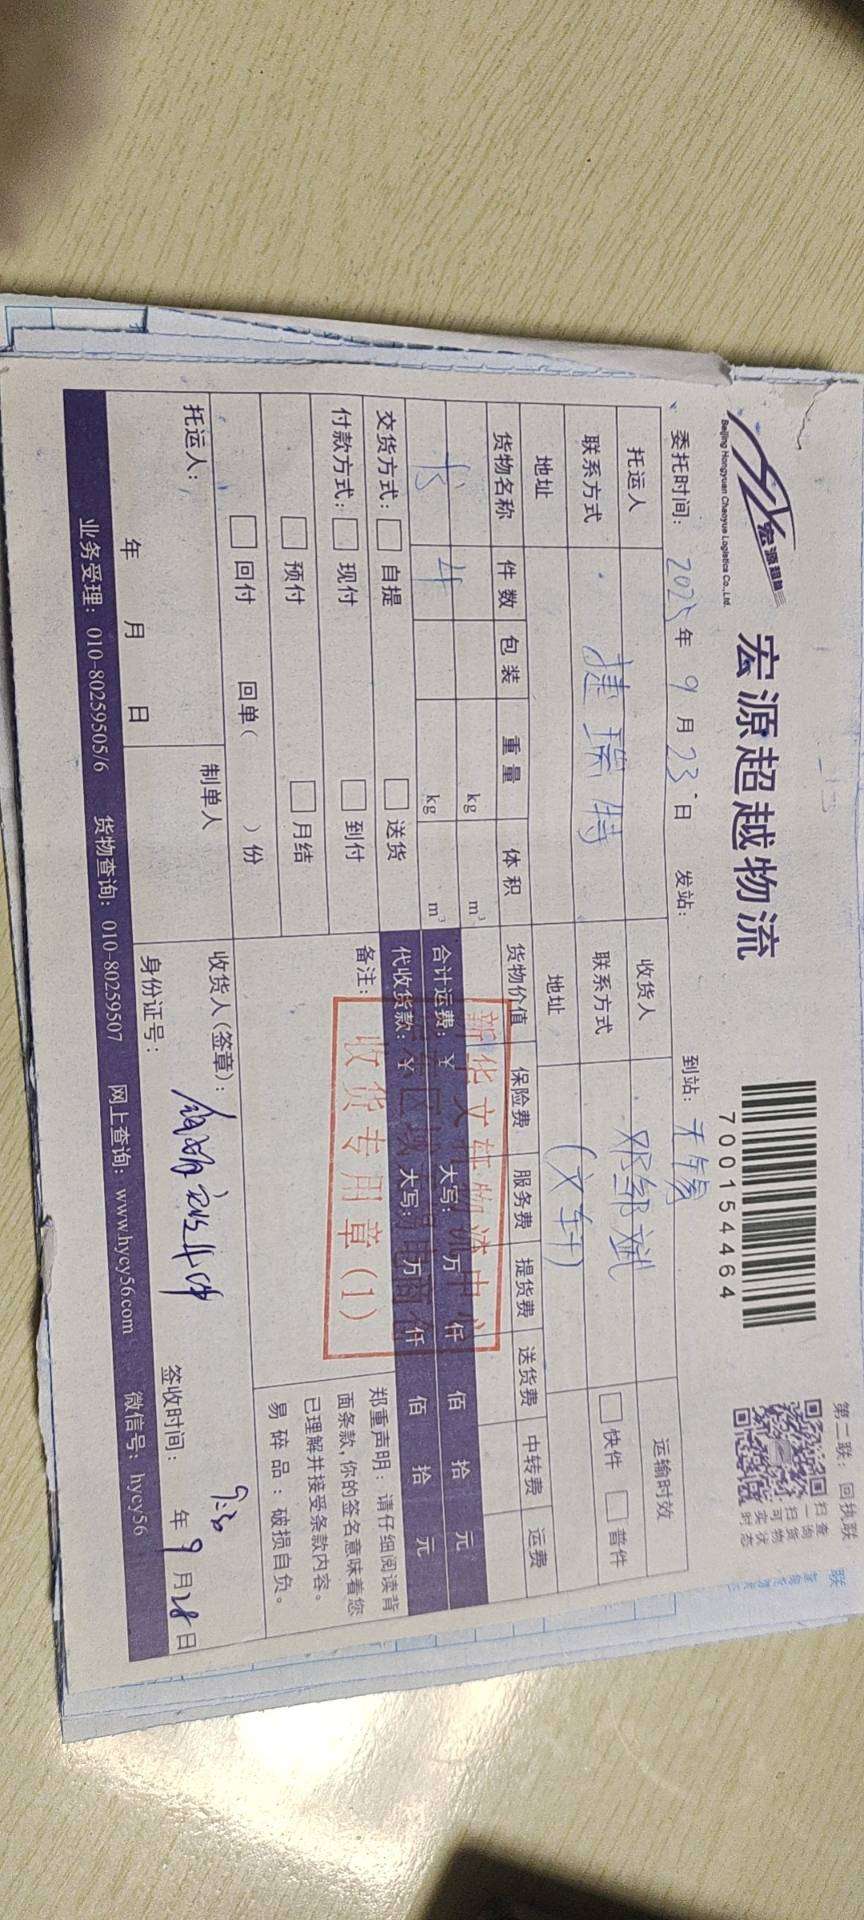 宏源超越
Beijing Hongyuan Chaoyue Logistics Co.,Ltd.
宏源超越物流
700154464
第二联：回执联
扫一扫可实时
查询货物状态
委托时间：2025年9月23日 发站： 到站：
托运人 收货人 邓邹斌 运输时效
联系方式 捷瑞特 联系方式 □快件 □普件
地址 地址 (文轩)
货物名称 件数 包装 重量 体积 货物价值 保险费 服务费 提货费 送货费 中转费 运费
kg m³
书 4 kg m³
合计运费：¥ 大写： 万 仟 佰 拾 元
交货方式：□自提 □送货 代收货款：¥ 大写： 万 仟 佰 拾 元
付款方式：□现付 □到付
□预付 □月结
□回付 回单( )份
备注：
新华文轩物流中心
收货专用章(1)
郑重声明：请仔细阅读背
面条款,你的签名意味着您
已理解并接受条款内容。
易碎品：破损自负。
托运人： 制单人 收货人(签章)：
年 月 日 身份证号： 签收时间： 年9月28日
业务受理：010-80259505/6 货物查询：010-80259507 网上查询：www.hycy56.com 微信号：hycy56